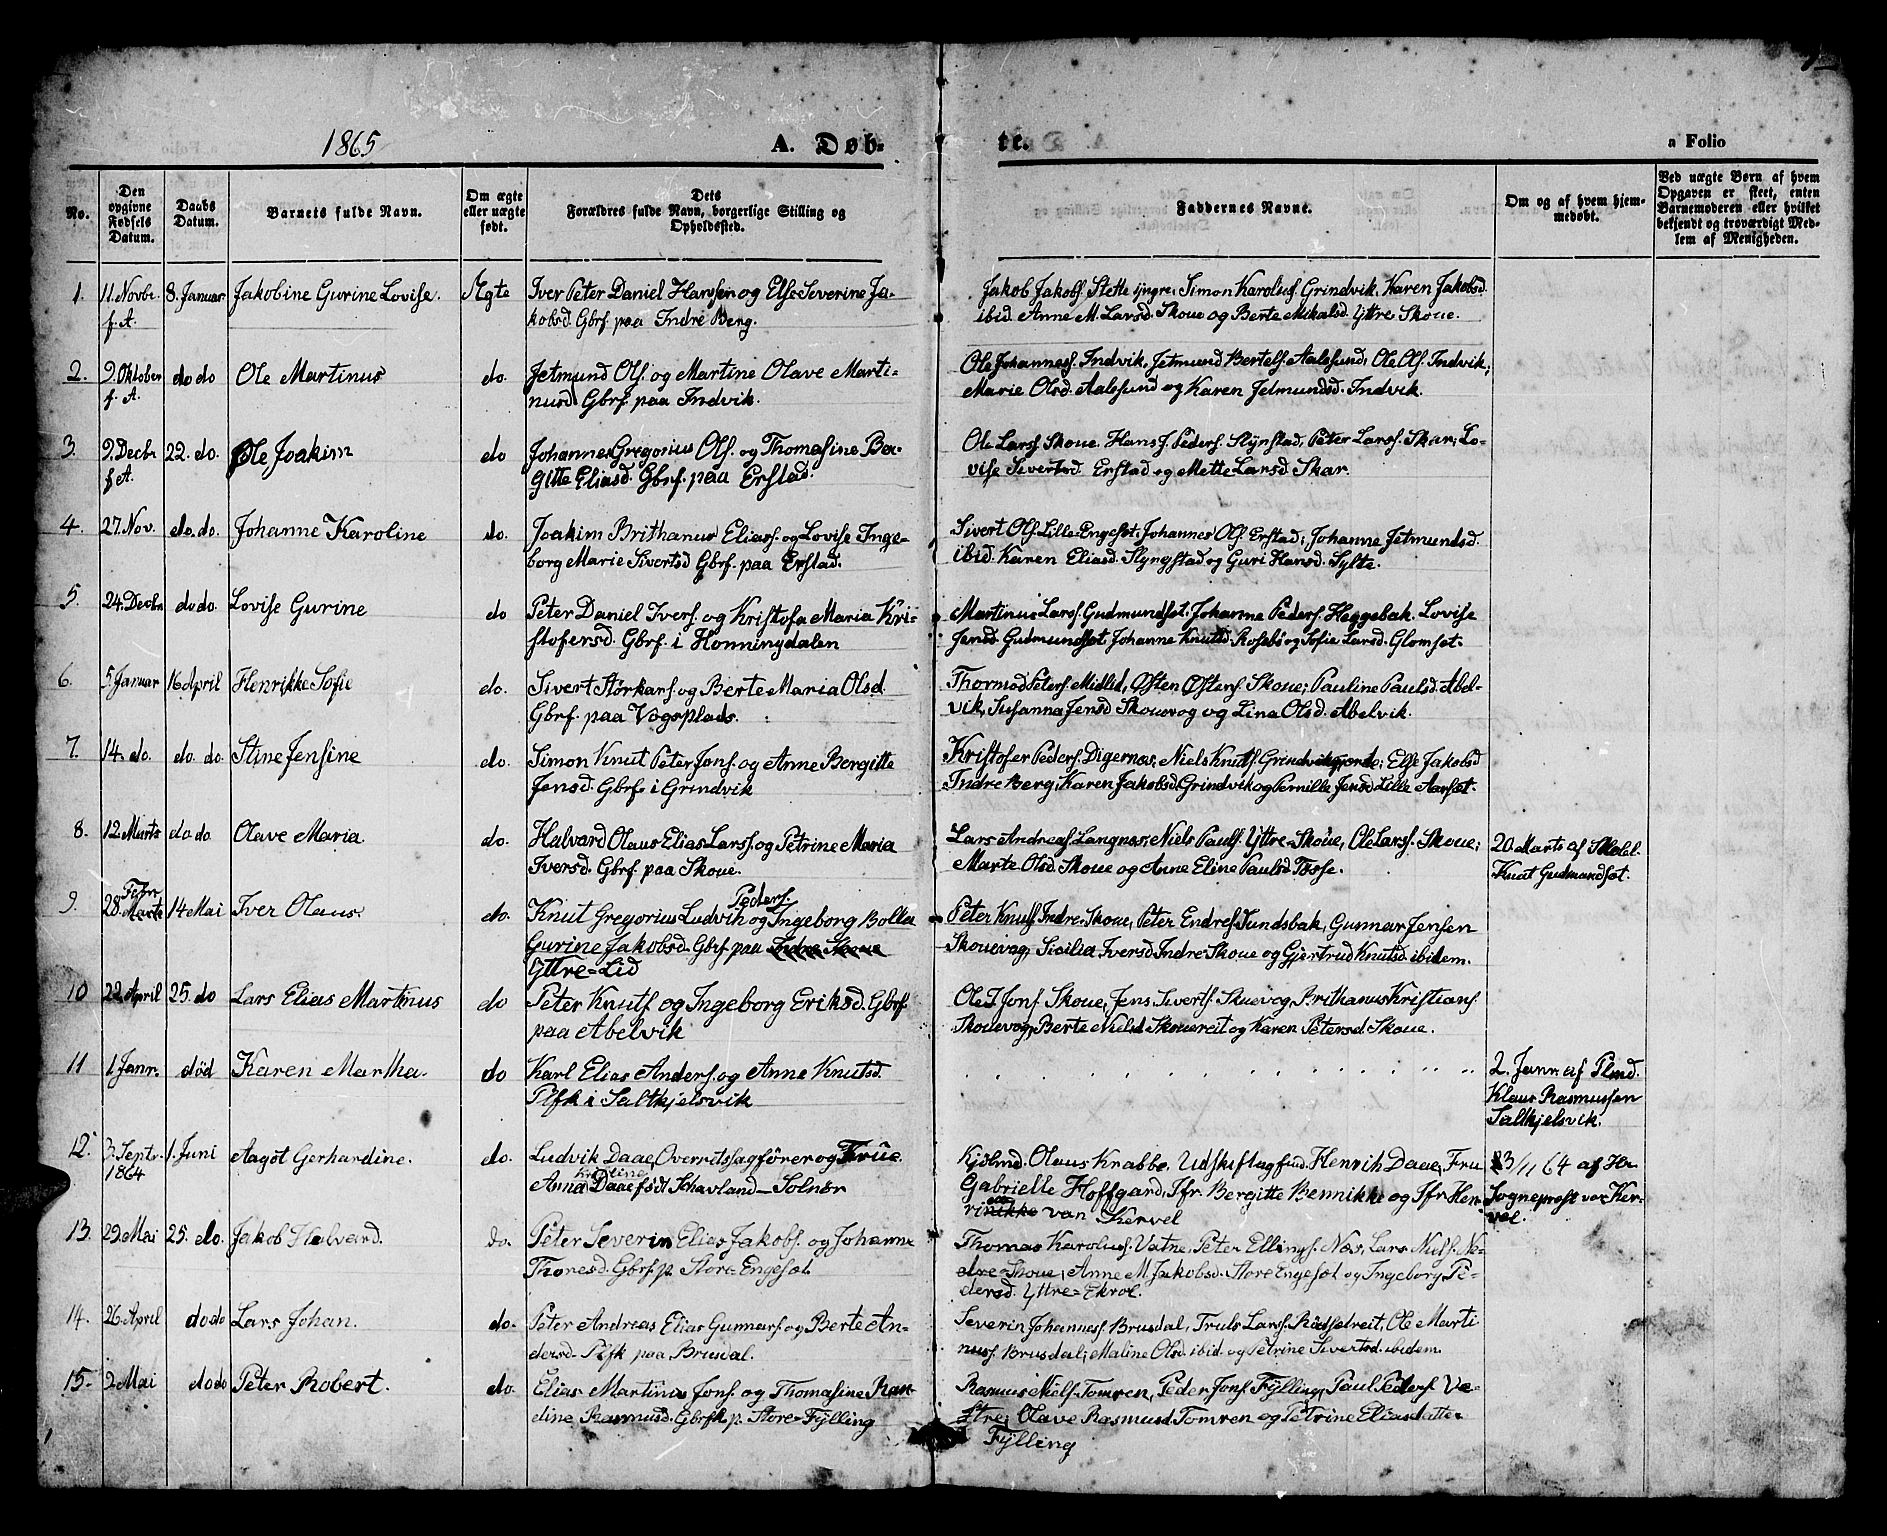 1865
A. Døb-
te.
a Folio
No.
Den opgivne Fødsels Datum.
Daabs Datum.
Barnets fulde Navn.
Om ægte eller uægte født.
Dets Forældres fulde Navn, borgerlige Stilling og Opholdsted.
Faddernes Navne.
Om og af hvem hjemmedøbt.
Ved uægte Børn af hvem Opgaven er skeet, enten Barnemoderen eller hvilket bekjendt og troværdigt Medlem af Menigheden.
1. 11. Novbr. 8. Januar Jakobine Gurine Lovise. Ægte Iver Peter Daniel Hansen og Else Severine Ja- Jakob Jakobs. Stette yngre; Simon Karolus. Grindvik, Karen Jakobsd.
f. A. kobsd. Gbrf. paa Indre Berg. ibid. Anne M. Larsd. Skoue og Berte Mikalsd. Yttre Skoue.
2. 9. Oktober do do Ole Martinus do. Jetmund Ols. og Martine Olave Marti- Ole Johanness. Indvik, Jetmund Bertels. Aalesund; Ole Ols. Indvik;
f. A. nusd. Gbrf. paa Indvik. Marie Olsd. Aalesund og Karen Jetmundsd. Indvik.
3. 9. Decbr 22. do. Ole Joakim do Johannes Gregorius Ols. og Thomasine Ber- Ole Larss. Skoue. Hans J. Peders. Slynstad, Peter Larss. Skar; Lo-
f A. gitte Eliasd. Gbrf. paa Erstad. vise Sivertsd. Erstad og Mette Larsd. Skar.
4. 27. Nov. do. do. Johanne Karoline do. Joakim Brithanus Eliass. og Lovise Inge- Sivert Ols. Lille-Engeset; Johannes Ols. Erstad; Johanne Jetmundsd.
borg Marie Sivertsd Gbrf. paa Erstad. ibid. Karen Eliasd. Slyngstad og Guri Hansd. Sylte.
5. 24. Decbr do do. Lovise Gurine do Peter Daniel Ivers. og Kristofa Maria Kri- Martinus Larss. Gudmundset; Johanne Peders. Heggebak. Lovise
stofersd. Gbrf. i Honningdalen Jensd Gudmundset Johanne Knutsd. og Sofie Larsd. Glomset.
6. 5. Januar 16 April Henrikke Sofie do. Sivert Störkars. og Berte Maria Olsd. Thormod Peters. Midlid, Østen Østens. Skoue; Pauline Paulsd. Abel-
Gbrf. paa Vagsplads. vik, Susanna Jensd Skouevog og Lina Olsd. Abelvik.
7. 14. do. do. do. Stine Jensine do. Simon Knut Peter Jons. og Anne Bergitte Kristofer Peders. Digernes, Niels Knuts. ; Else Jakobsd
Jensd. Gbrf. i Grindvik Indre Berg, Karen Jakobsd. Grindvik og Pernille Jensd Lille Aarset.
8. 12. Marts do do. Olave Maria. do. Halvard Olaus Elias Larss. og Petrine Maria Lars Andreas. Langnes; Niels Pauls. Yttre-Skoue, Ole Larss. Skoue; 20. Marts af Skolel-
Iversd. Gbrf. paa Skoue. Marte Olsd. Skoue og Anne Eline Paulsd. Tosse. Knut Gudmundset.
9. 28. Febr Marts 14 Mai Iver Olaus. do. Knut Gregorius Ludvik Peders. og Ingeborg Bolla Peter Knuts. Indre-Skoue, Peter Endres. Sundsbak, Gunnar Jensen
Gurine Jakobsd. Gbrf. paa Indre Skoue Skouevag, Sicilia Iversd. Indre Skoue og Gjertrud Knutsd. ibidem.
Yttre-Lid
10 22 April 25. do Lars Elias Martinus do Peter Knuts. og Ingeborg Eriksd. Gbrf. Ole J Jons. Skoue, Jens Siverts. Skuevog, Brithanus Kristians.
paa Abelvik Skouevog, Berte Nielsd. Skouereit og Karen Petersd Skoue.
11 1. Janr. død Karen Martha. do Karl Elias Anders. og Anne Knutsd. 2. Janr. af Plmd.
Plfk i Saltkjelsvik Klaus Rasmussen
Saltkjelsvik.
12. 3. Septr. 1. Juni Aagot Gerhardine. do. Ludvik Daae, Overretssagfører og Frue Kjöbmd. Olaus Krabbe. Udskiftngfud. Henrik Daae, Fru 23/11 64 af Hr
1864 Anna Kristine Daae født Schavland - Solnør Gabrielle Hoffgard, Jfr. Bergitte Bennikke og Jfr. Hen- Sogneprest van Ker-
rinikke van Kervel vel.
13. 29. Mai 25. do. Jakob Halvard. do. Peter Severin Elias Jakobs. og Johanne Thomas Karolus. Vatne, Peter Ellings. Næs, Lars Niels. Ne-
Thoresd. Gbrf. p. Store-Engeset dre-Skoue, Anne M. Jakobsd. Store Engeset og Ingeborg Pe-
dersd. Yttre-Ekrol.
14. 26. April do do Lars Johan. do. Peter Andreas Elias Gunnars. og Berte An- Severin Johanness. Brusdal, Truls Larss. Rødsetreit, Ole Marti
dersd. Plfk paa Brusdal. nuss. Brusdal; Maline Olsd. ibid. og Petrine Sivertsd. ibidem.
15. 2. Mai do do Peter Robert. do. Elias Martinus Jons. og Thomasine Ran- Rasmus Niels. Tomren, Peder Jons. Fylling, Paul Peders. Ve-
dine Rasmusd. Gbrfk p. Store-Fylling stre; Olave Rasmusd Tomren og Petrine Eliasdatter
Fylling